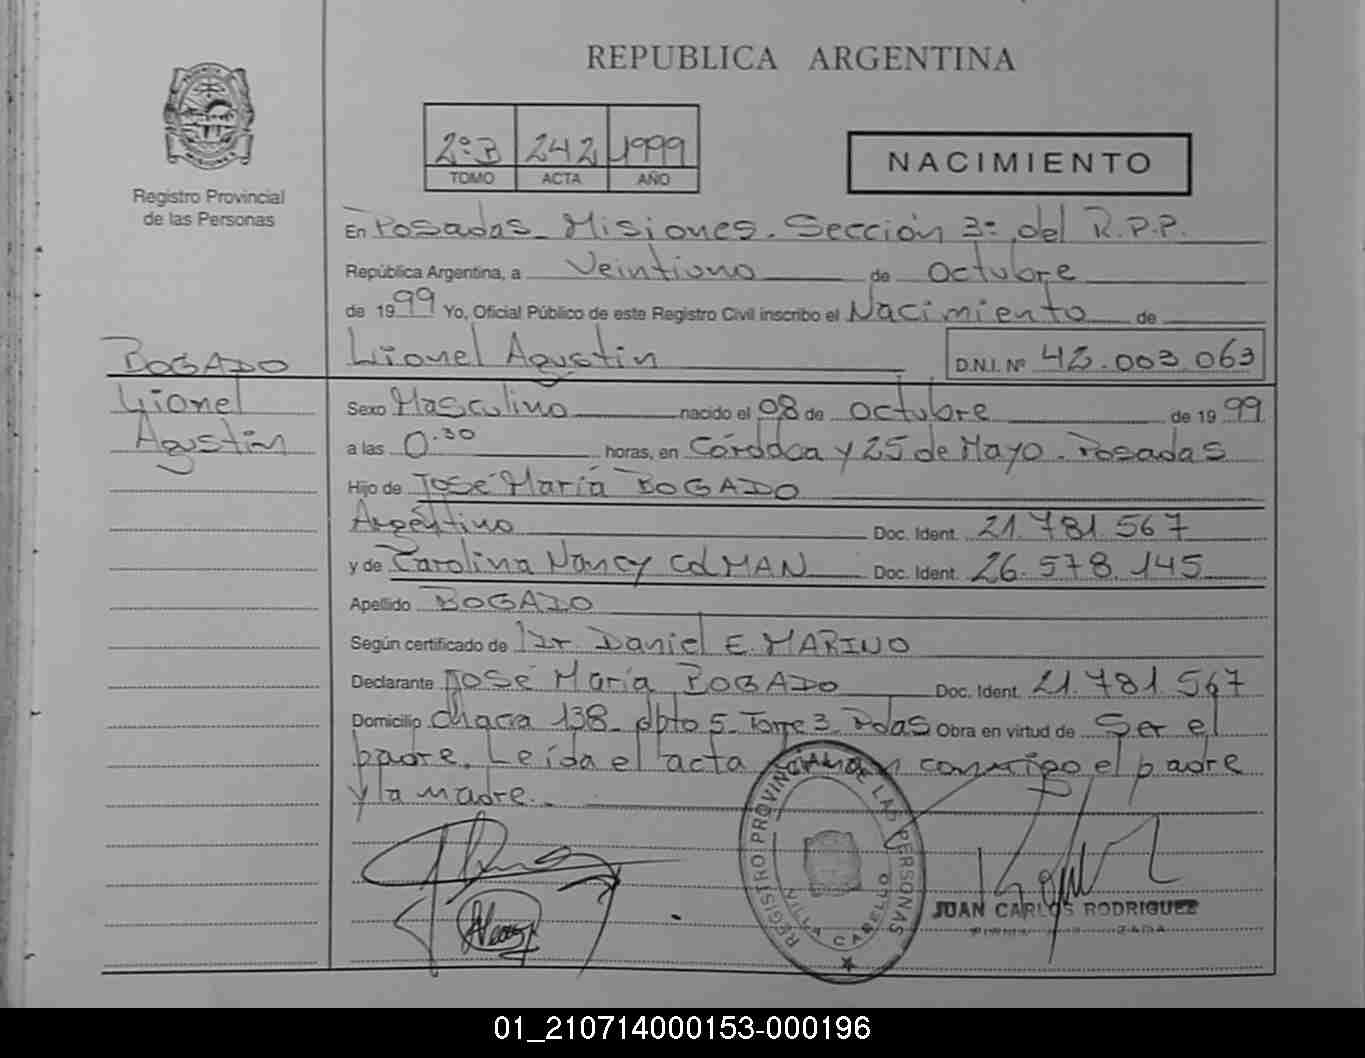 REPUBLICA ARGENTINA
2º B 242 1999
TOMO ACTA AÑO
NACIMIENTO
Registro Provincial
de las Personas
En Posadas Misiones. Sección 3º del R.P.P.
República Argentina, a Veintiuno de Octubre
de 1999 Yo, Oficial Público de este Registro Civil inscribo el Nacimiento de
Lionel Agustin D.N.I. Nº 42.003.063
BOGADO
Lionel
Agustin
Sexo Masculino nacido el 08 de octubre de 1999
a las 0.30 horas, en Córdoca y 25 de Mayo. Posadas
Hijo de José María BOGADO
Argentino Doc. Ident. 21.781.567
y de Carolina Nancy COLMAN Doc. Ident. 26.578.145
Apellido BOGADO
Según certificado de Dr. Daniel E. MARINO
Declarante José María BOGADO Doc. Ident. 21.781.567
Domicilio chacra 138 dpto 5 Torre 3 Pdas Obra en virtud de Ser el
padre. Leída el acta conmigo el padre
y la madre.
REGISTRO PROVINCIAL DE LAS PERSONAS
VILLA CABELLO
JUAN CARLOS RODRIGUEZ
01_210714000153-000196